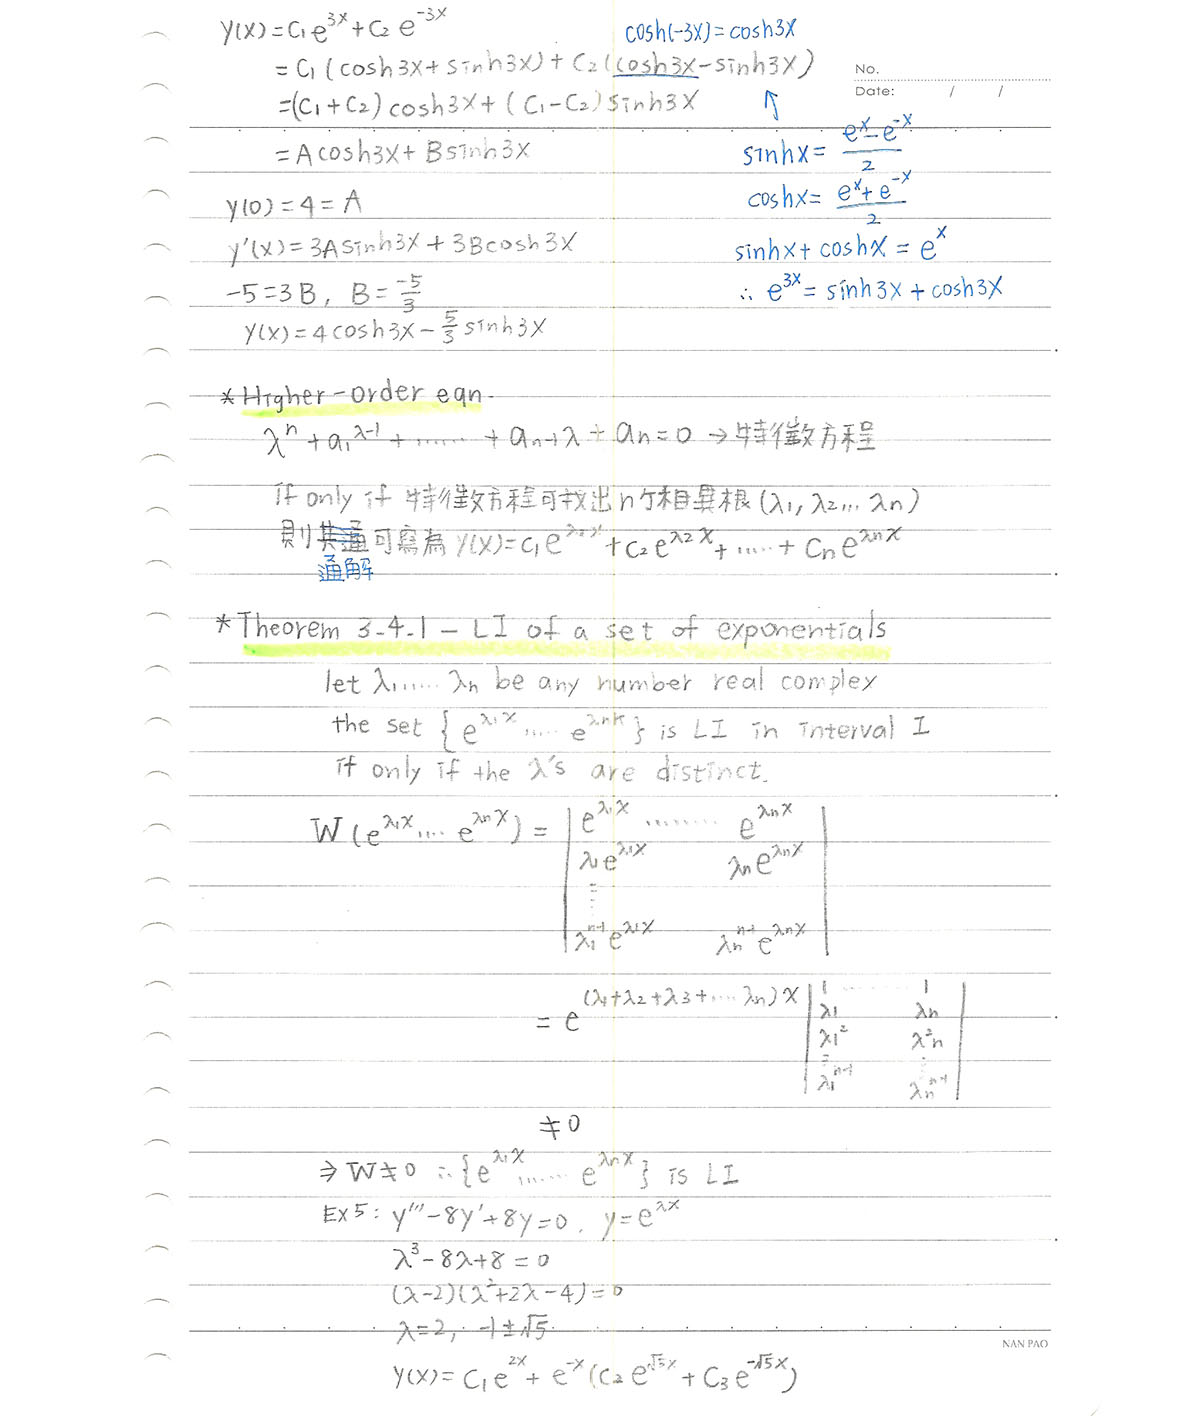 y(x)=C₁e^{3x}+C₂e^{-3x}
cosh(-3x)=cosh3x
=C₁(cosh3x+sinh3x)+C₂(cosh3x-sinh3x)
No.
Date: / /
=(C₁+C₂)cosh3x+(C₁-C₂)sinh3x
=Acosh3x+Bsinh3x
sinhx=\frac{e^x-e^{-x}}{2}
coshx=\frac{e^x+e^{-x}}{2}
y(0)=4=A
y'(x)=3Asinh3x+3Bcosh3x
sinhx+coshx=e^x
-5=3B, B=\frac{-5}{3}
∴ e^{3x}=sinh3x+cosh3x
y(x)=4cosh3x-\frac{5}{3}sinh3x
*Higher-order eqn.
λ^n+a₁^{λ-1}+……+a_{n-1}λ+a_n=0→特徵方程
if only if 特徵方程可找出n个相異根(λ₁,λ₂…λn)
則其通可寫為 y(x)=c₁e^{λ₁x}+c₂e^{λ₂x}+……+Cne^{λnx}
通解
*Theorem 3-4-1-LI of a set of exponentials
let λ₁……λn be any number real complex
the set {e^{λ₁x}……e^{λnx}} is LI in interval I
if only if the λ's are distinct.
W(e^{λ₁x}…e^{λnx})=|e^{λ₁x} ……… e^{λnx}|
λ₁e^{λ₁x} λne^{λnx}
⋮
λ₁^{n-1}e^{λ₁x} λn^{n-1}e^{λnx}
=e^{(λ₁+λ₂+λ₃+…λn)x}|1 …… 1|
λ₁ λn
λ₁² λ²n
⋮ ⋮
λ₁^{n-1} λn^{n-1}
≠0
⇒W≠0 ∴{e^{λ₁x}……e^{λnx}} is LI
EX5: y'''-8y'+8y=0. y=e^{λx}
λ³-8λ+8=0
(λ-2)(λ²+2λ-4)=0
λ=2, -1±√5
NAN PAO
y(x)=C₁e^{2x}+e^{-x}(C₂e^{√5x}+C₃e^{-√5x})